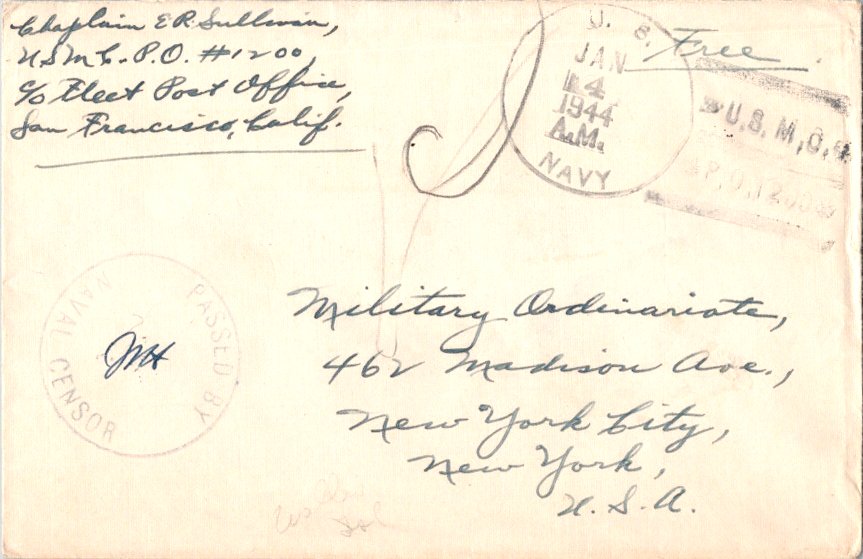 Chaplain E R Sullivan,
U S M C. P.O. #1200,
c/o Fleet Post Office,
San Francisco, Calif.
Free
U. S.
JAN
14
1944
A.M.
NAVY
U.S.M.C.
P.O.1200
PASSED BY
NAVAL CENSOR
JMH
Military Ordinariate,
462 Madison Ave.,
New York City,
New York,
U.S.A.